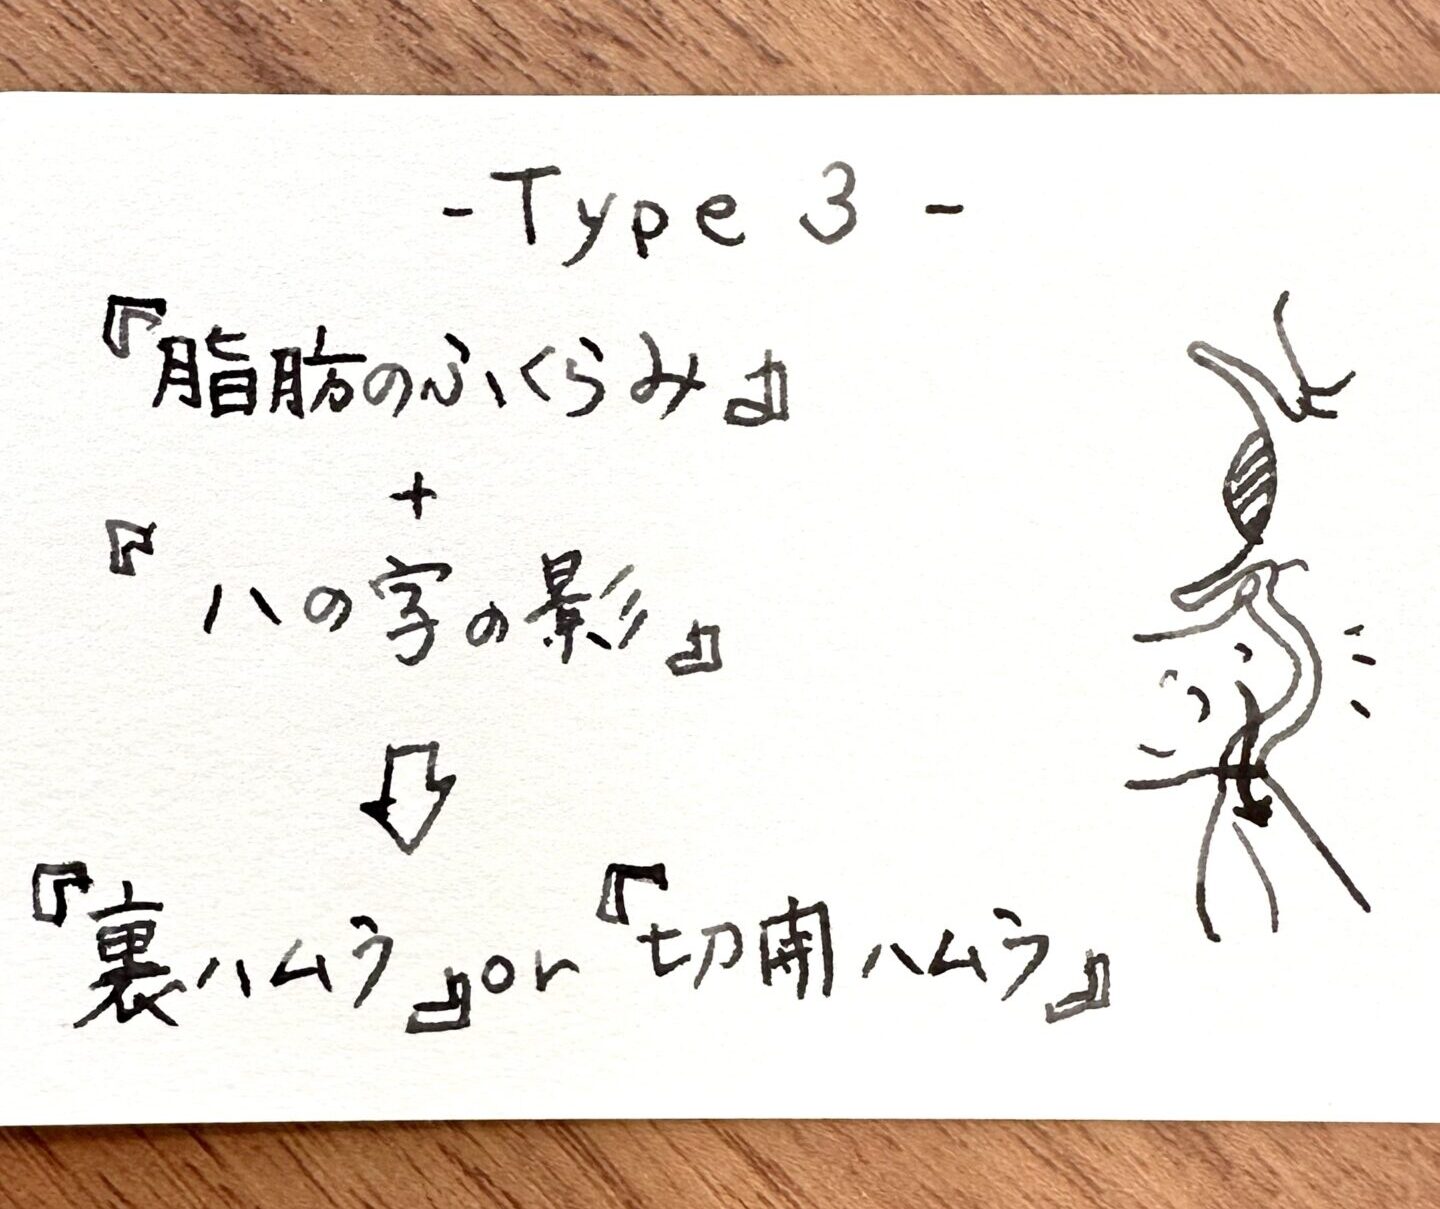 - Type 3 -
『脂肪のふくらみ』
+
『ハの字の影』
『裏ハムラ』or『切開ハムラ』